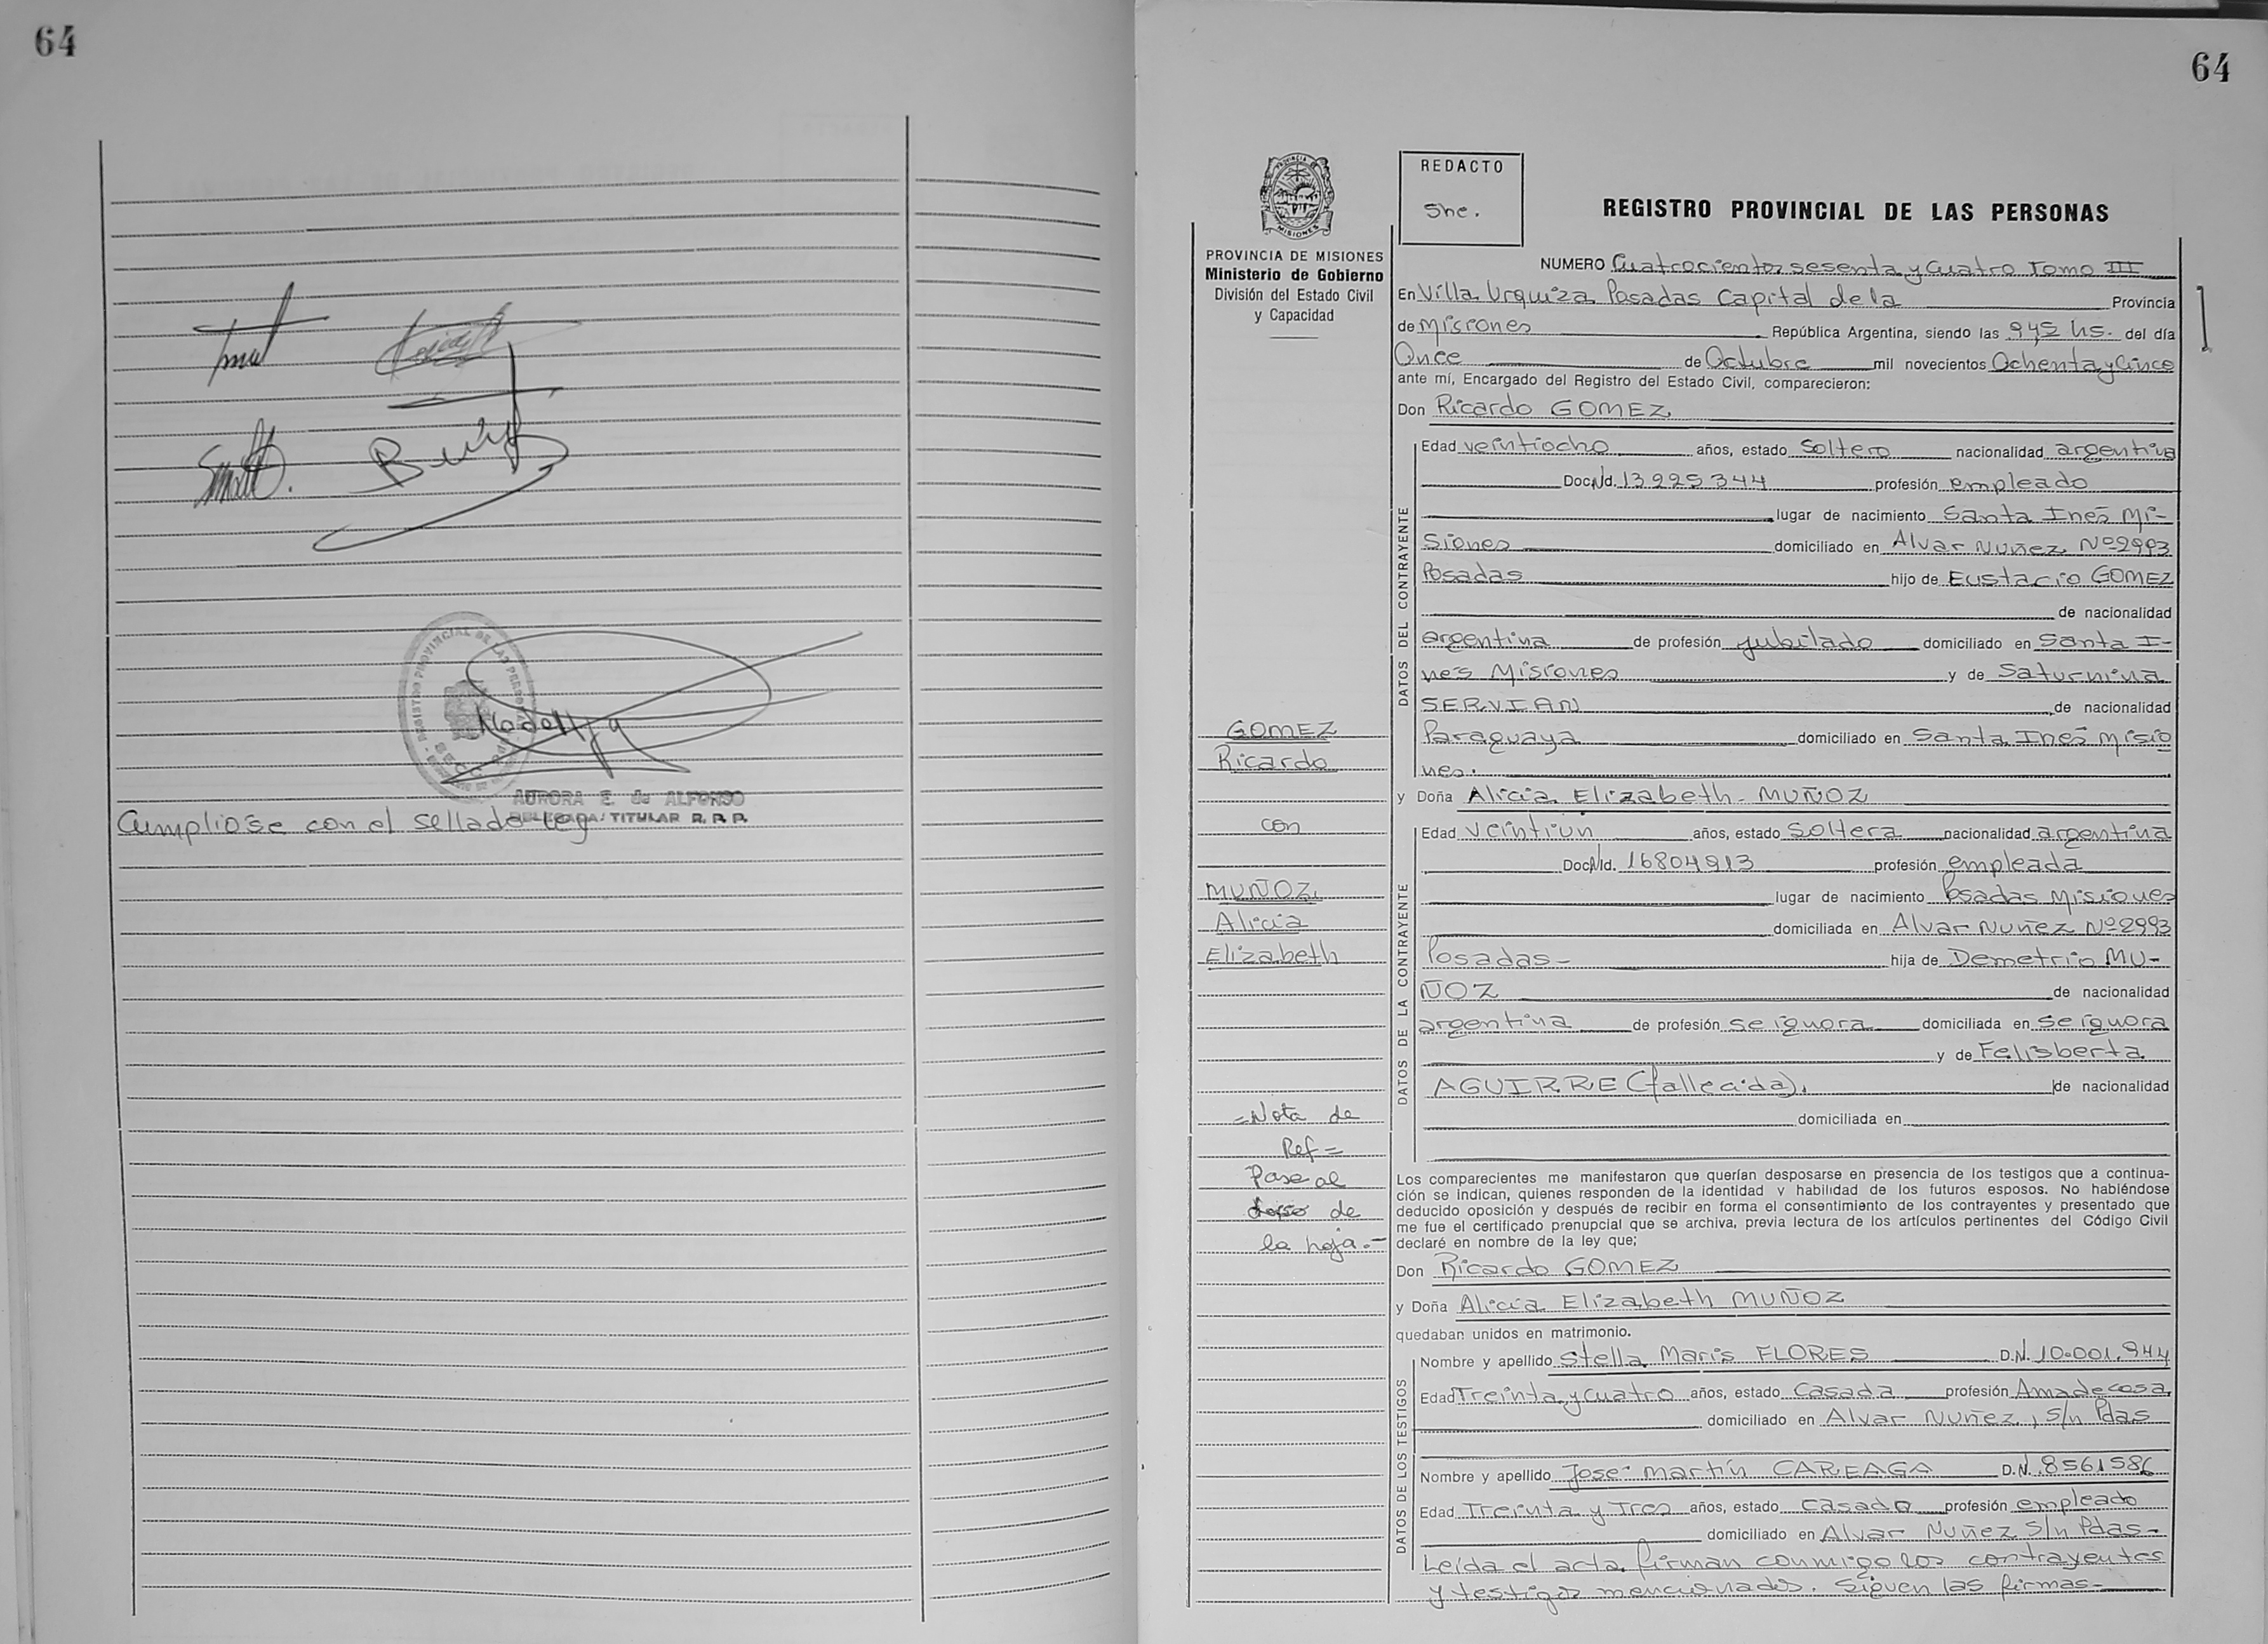 64
AURORA E. de ALFONSO
TITULAR R. P. P.
Cumpliose con el sellado leg
64
PROVINCIA DE MISIONES
Ministerio de Gobierno
División del Estado Civil
y Capacidad
REDACTO
She.
REGISTRO PROVINCIAL DE LAS PERSONAS
NUMERO Cuatrocientos sesenta y Cuatro Tomo III
En Villa Urquiza Posadas Capital de la Provincia
de Misiones República Argentina, siendo las 9,45 hs. del día
Once de Octubre mil novecientos Ochenta y Cinco
ante mí, Encargado del Registro del Estado Civil, comparecieron:
Don Ricardo GOMEZ
DATOS DEL CONTRAYENTE
Edad veintiocho años, estado Soltero nacionalidad argentina
Doc. Nd. 13225344 profesión empleado
lugar de nacimiento Santa Ines Mi-
siones domiciliado en Alvar Nuñez Nº2993
Posadas hijo de Eustacio GOMEZ
de nacionalidad
argentina de profesión jubilado domiciliado en Santa I-
nes Misiones y de Saturnina
SERVIAN de nacionalidad
Paraguaya domiciliado en Santa Ines Misio
nes.
y Doña Alicia Elizabeth- MUÑOZ
DATOS DE LA CONTRAYENTE
Edad veintiun años, estado Soltera nacionalidad argentina
Doc. Nd. 16804913 profesión empleada
lugar de nacimiento Posadas Misiones
domiciliada en Alvar Nuñez Nº2993
Posadas- hija de Demetrio MU-
ÑOZ de nacionalidad
argentina de profesión se ignora domiciliada en se ignora
y de Felisberta
AGUIRRE (fallecida). de nacionalidad
domiciliada en
GOMEZ
Ricardo
con
MUÑOZ
Alicia
Elizabeth
=Nota de
Ref=
Pase al
dorso de
la hoja.-
Los comparecientes me manifestaron que querían desposarse en presencia de los testigos que a continua-
ción se indican, quienes responden de la identidad y habilidad de los futuros esposos. No habiéndose
deducido oposición y después de recibir en forma el consentimiento de los contrayentes y presentado que
me fue el certificado prenupcial que se archiva, previa lectura de los artículos pertinentes del Código Civil
declaré en nombre de la ley que;
Don Ricardo GOMEZ
y Doña Alicia Elizabeth MUÑOZ
quedaban unidos en matrimonio.
DATOS DE LOS TESTIGOS
Nombre y apellido Stella Maris FLORES D.N. 10.001.944
Edad Treinta y cuatro años, estado Casada profesión Ama de casa
domiciliado en Alvar Nuñez, s/n Pdas
Nombre y apellido Jose Martín CAREAGA D.N. 8561586
Edad Treinta y Tres años, estado casado profesión empleado
domiciliado en Alvar Nuñez s/n Pdas-
Leída el acta firman conmigo los contrayentes
y testigos mencionados. Siguen las firmas-